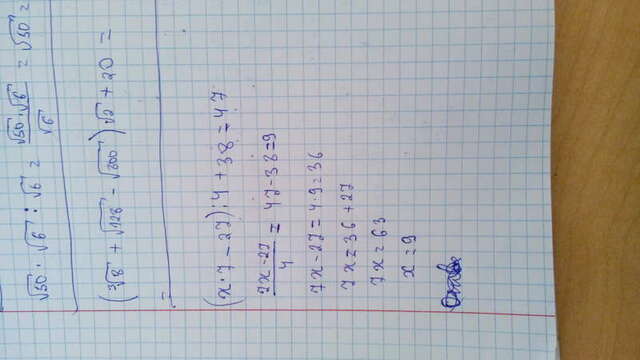 √50 · √6 : √6 = √50 · √6 / √6 = √50 =
(3√8 + √128 - √800) √2 + 20 =
(x · 7 - 27) : 4 + 38 = 47
7x - 27 / 4 = 47 - 38 = 9
7x - 27 = 4 · 9 = 36
7x = 36 + 27
7x = 63
x = 9